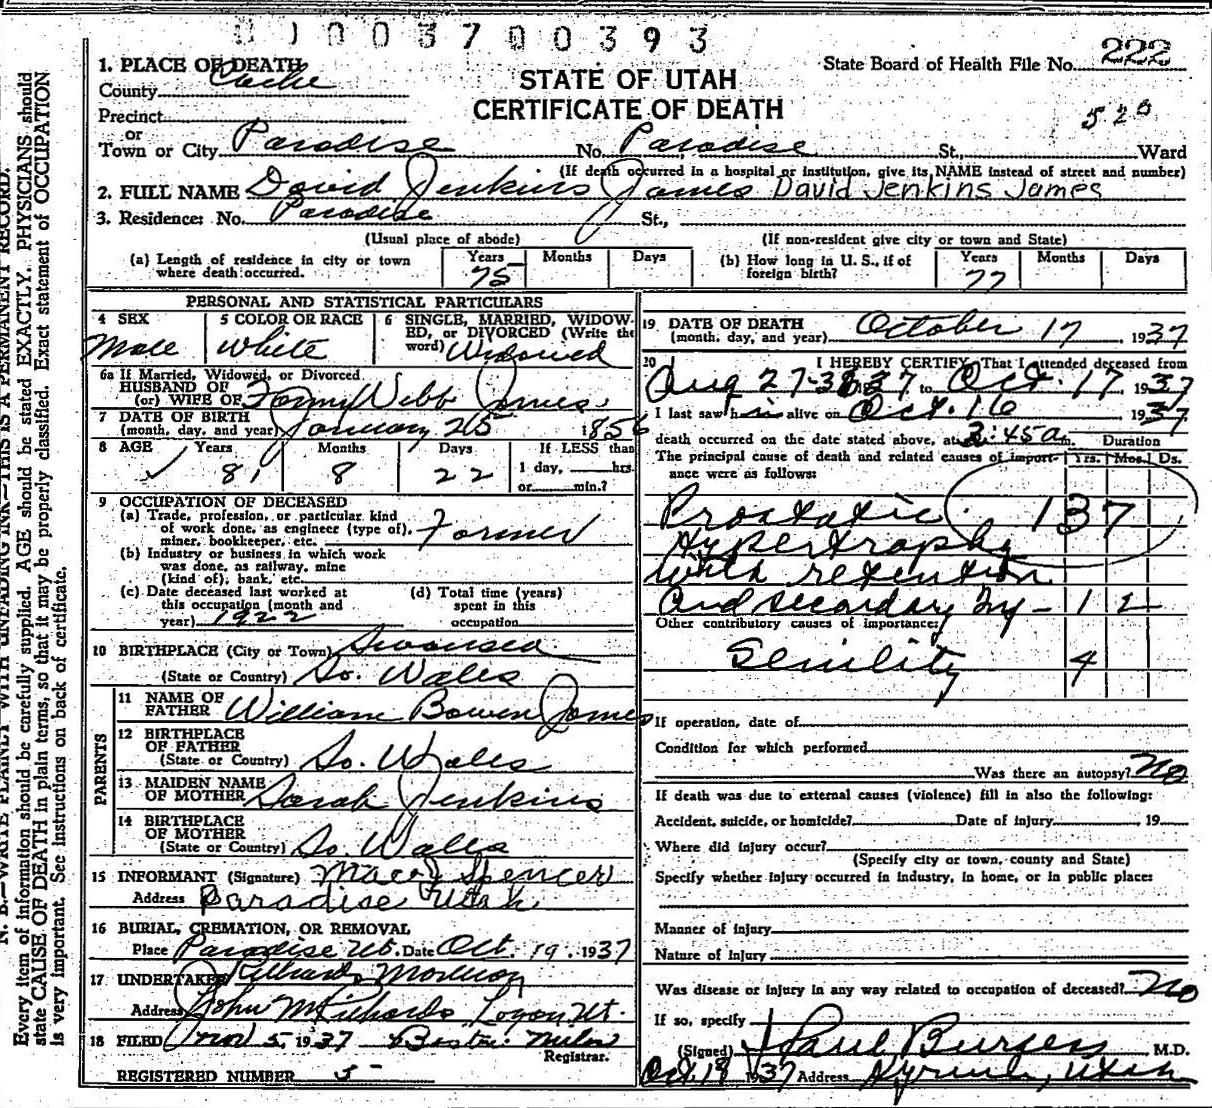 0 1 0 0 3 7 0 0 3 9 3
1. PLACE OF DEATH
County Cache
State Board of Health File No. 222
STATE OF UTAH
CERTIFICATE OF DEATH
Precinct
or
Town or City Paradise No. Paradise St., Ward
(If death occurred in a hospital or institution, give its NAME instead of street and number)
2. FULL NAME David Jenkins James David Jenkins James
3. Residence: No. Paradise St.,
(Usual place of abode) (If non-resident give city or town and State)
(a) Length of residence in city or town where death occurred. Years 75 Months Days (b) How long in U. S., if of foreign birth? Years 77 Months Days
PERSONAL AND STATISTICAL PARTICULARS
4 SEX Male 5 COLOR OR RACE White 6 SINGLE, MARRIED, WIDOWED, or DIVORCED (Write the word) Widowed
6a If Married, Widowed, or Divorced
HUSBAND OF
(or) WIFE OF Fanny Webb James
7 DATE OF BIRTH
(month, day, and year) January 25 1856
8 AGE Years 81 Months 8 Days 22 If LESS than
1 day, hrs.
or min.?
9 OCCUPATION OF DECEASED
(a) Trade, profession, or particular kind
of work done, as engineer (type of),
miner, bookkeeper, etc. Farmer
(b) Industry or business in which work
was done, as railway, mine
(kind of), bank, etc.
(c) Date deceased last worked at
this occupation (month and
year) 1922
(d) Total time (years)
spent in this
occupation
10 BIRTHPLACE (City or Town) Swansea
(State or Country) So. Wales
PARENTS
11 NAME OF
FATHER William Bowen James
12 BIRTHPLACE
OF FATHER
(State or Country) So. Wales
13 MAIDEN NAME
OF MOTHER Sarah Jenkins
14 BIRTHPLACE
OF MOTHER
(State or Country) So. Wales
15 INFORMANT (Signature) Mary J Spencer
Address Paradise Utah
16 BURIAL, CREMATION, OR REMOVAL
Place Paradise Ut. Date Oct. 19, 1937
17 UNDERTAKER
Address Logan Ut.
18 FILED Nov 5, 1937
Registrar.
REGISTERED NUMBER 5
19 DATE OF DEATH
(month, day, and year) October 17, 1937
20 I HEREBY CERTIFY, That I attended deceased from
Aug 27 - 37 to Oct. 17, 1937
I last saw him alive on Oct. 16 1937
death occurred on the date stated above, at 2:45 a m. Duration
The principal cause of death and related causes of importance were as follows: Yrs. Mos. Ds.
Prostatic 137
Hypertrophy
with retention
and secondary
Other contributory causes of importance:
Senility 4
If operation, date of
Condition for which performed
Was there an autopsy? No
If death was due to external causes (violence) fill in also the following:
Accident, suicide, or homicide? Date of injury , 19
Where did injury occur?
(Specify city or town, county and State)
Specify whether injury occurred in industry, in home, or in public place:
Manner of injury
Nature of injury
Was disease or injury in any way related to occupation of deceased? No
If so, specify
(Signed) Paul Burgess M.D.
Oct. 19 1937 Address Hyrum, Utah
N. B.—WRITE PLAINLY WITH UNFADING INK—THIS IS A PERMANENT RECORD.
Every item of information should be carefully supplied. AGE should be stated EXACTLY. PHYSICIANS should
state CAUSE OF DEATH in plain terms, so that it may be properly classified. Exact statement of OCCUPATION
is very important. See instructions on back of certificate.